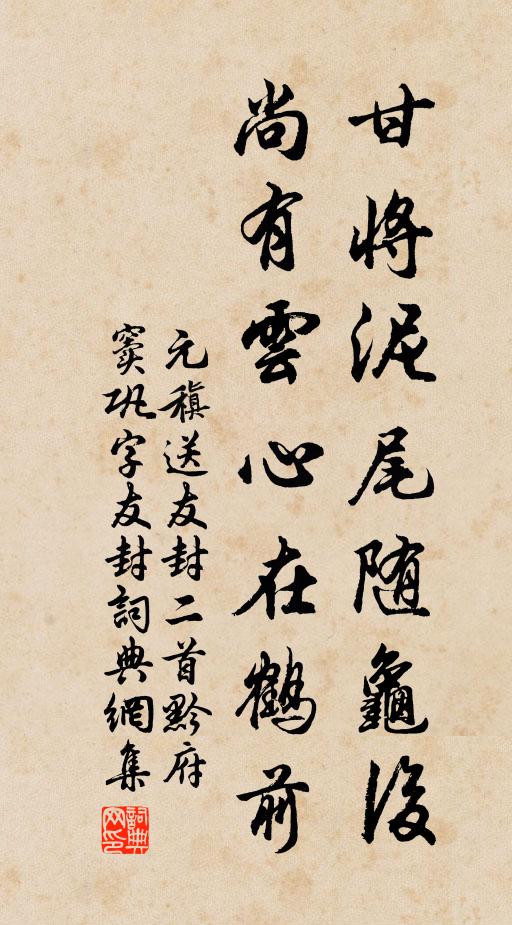 甘將泥尾随龜後
尚有雲心在鶴前
元稹送友封二首黔府
竇巩字友封詞典網集
詞典网印